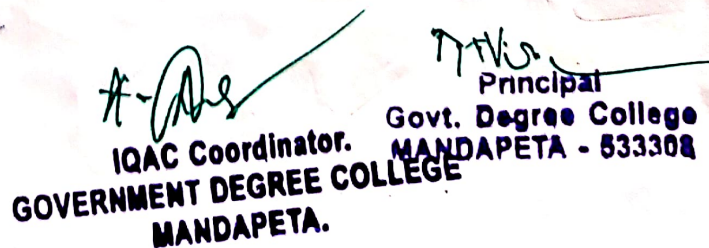 IQAC Coordinator.
GOVERNMENT DEGREE COLLEGE
MANDAPETA.
Principal
Govt. Degree College
MANDAPETA - 533308